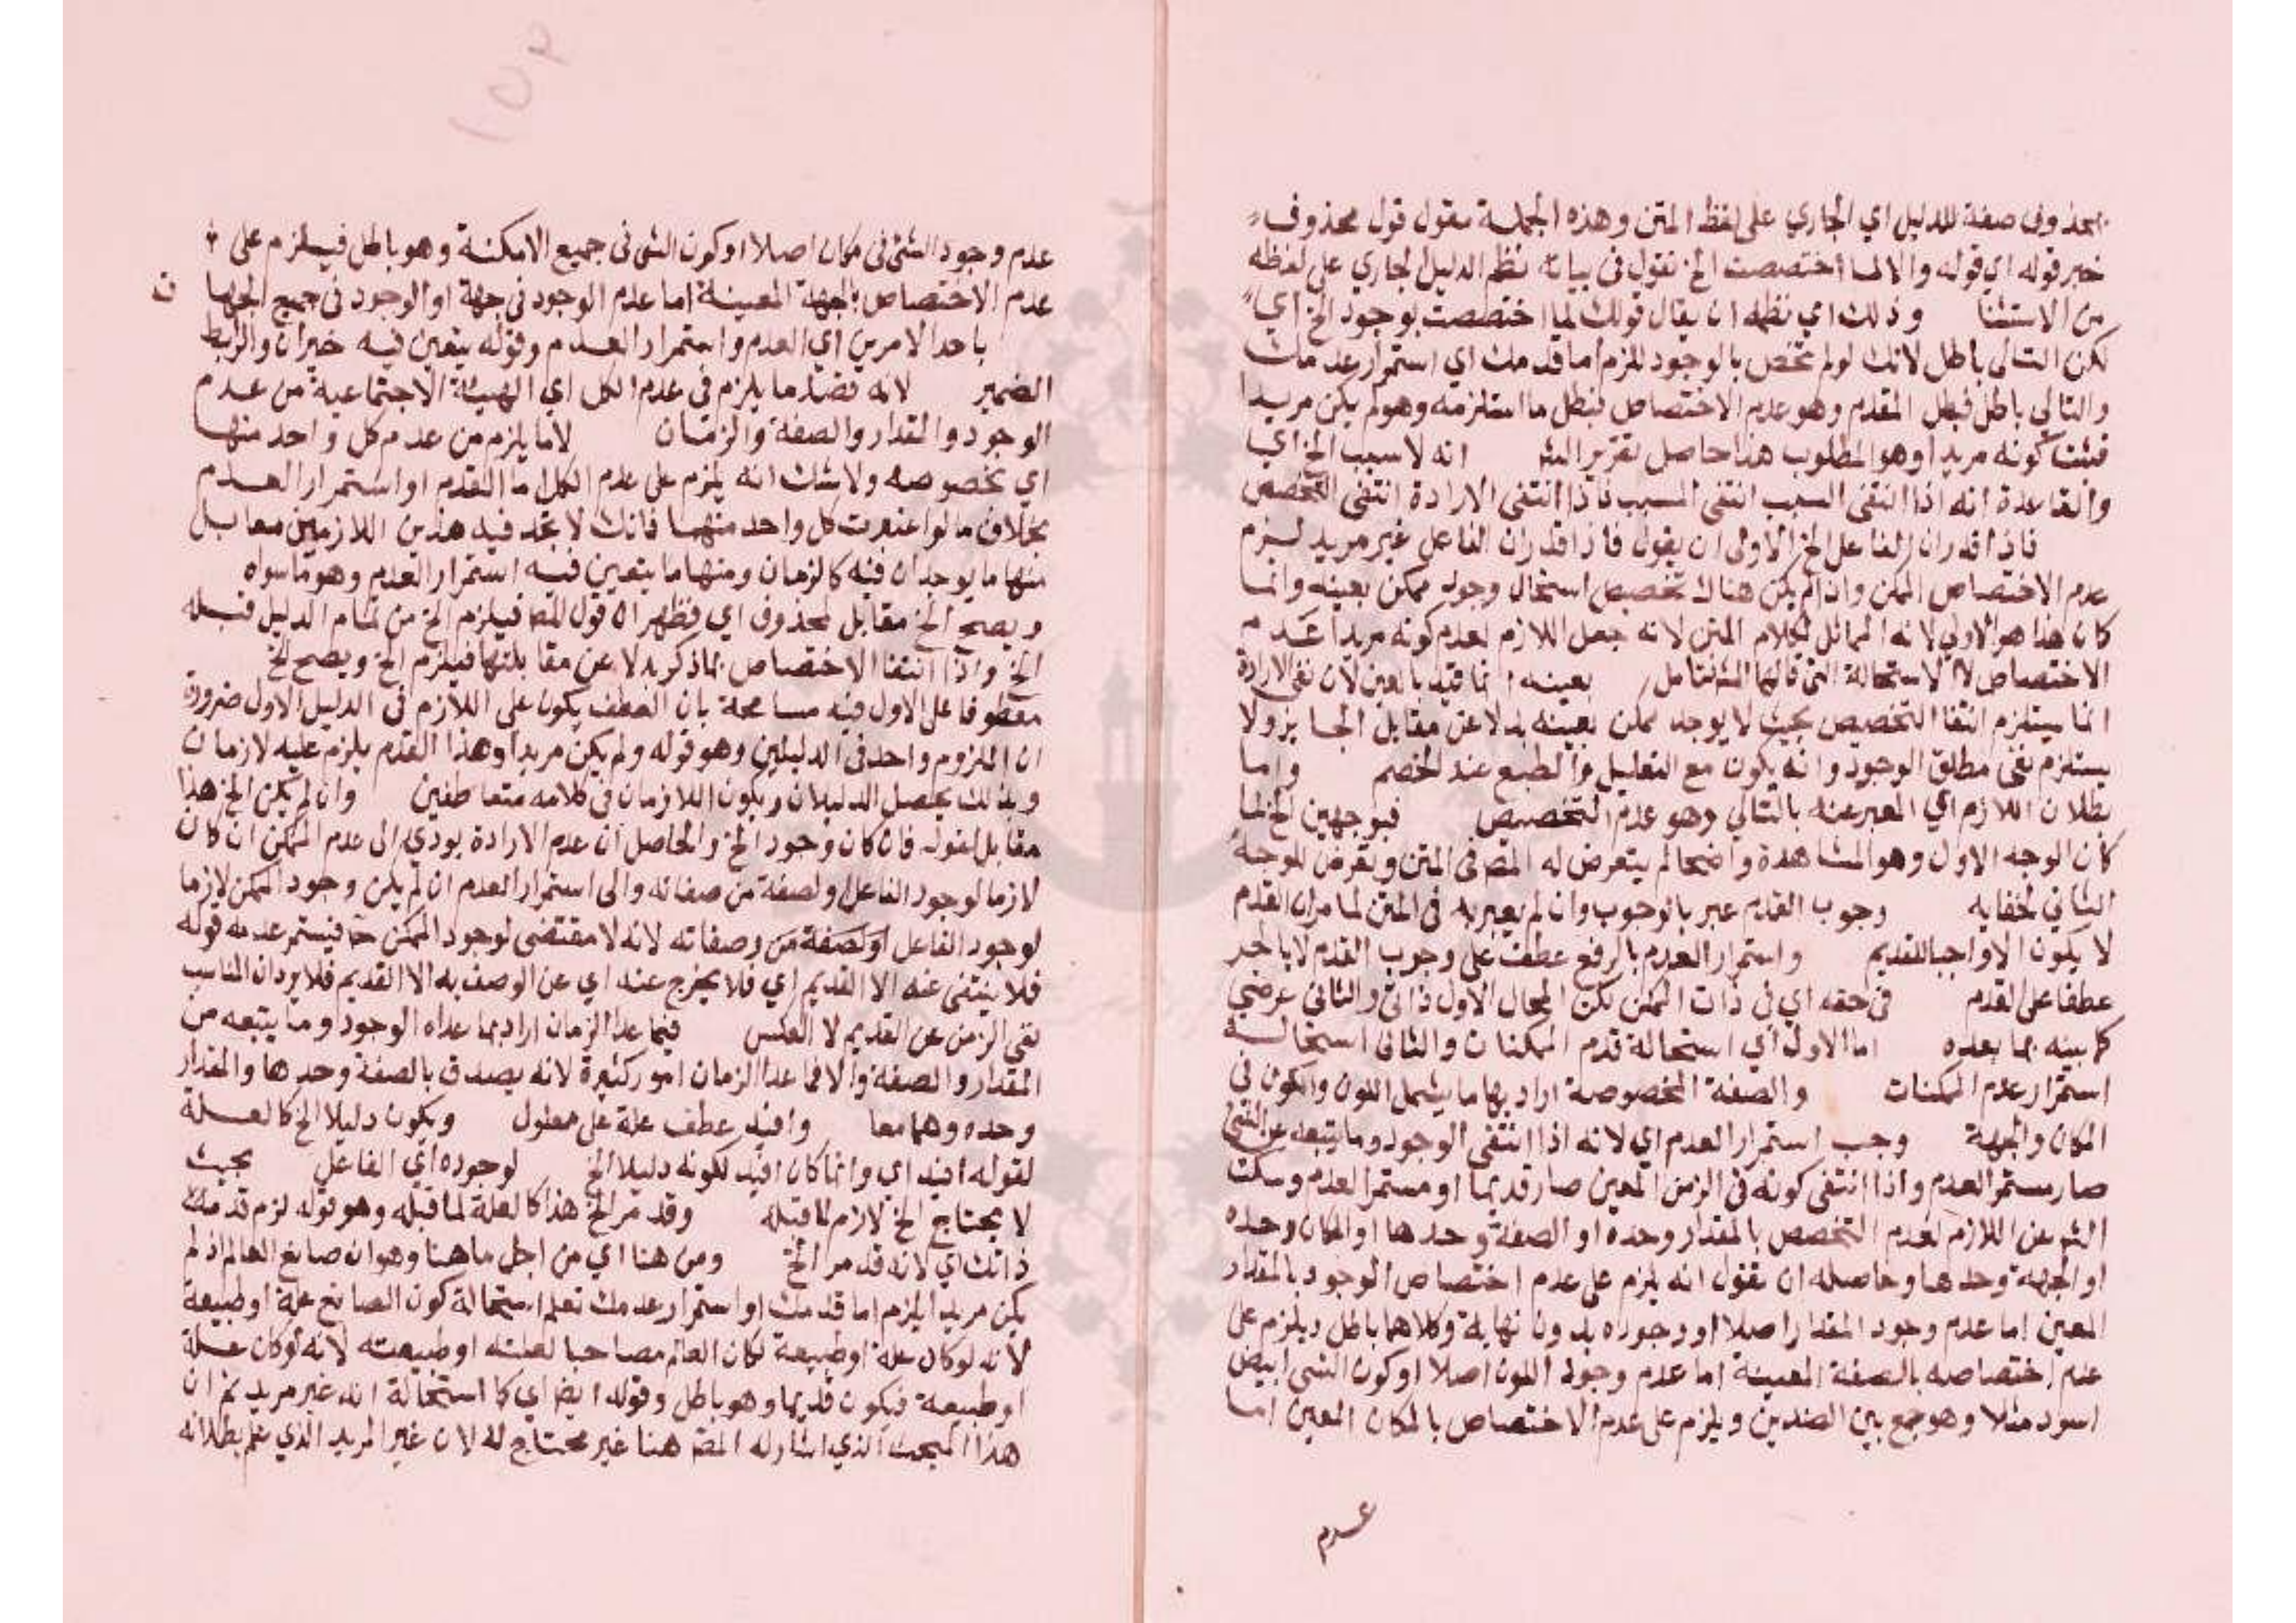 محذوف صفة للدليل اي الجاري على لفظ المتن وهذه الجملة مقول قول محذوف
خبر قوله اي قوله والا لما اختصصت الخ نقول في بيانه نظم الدليل الجاري على لفظه
من الاستثنا وذلك اي نظمه ان يقال قولك لما اختصصت بوجود الخ اي
لكن التالى باطل لانك لو لم تختص بالوجود للزم اما قدمك اي استمرار عدمك
والتالي باطل فبطل المقدم وهو عدم الاختصاص فبطل ما استلزمه وهو لم يكن مريدا
فثبت كونه مريدا وهو المطلوب هذا حاصل تقرير الش انه لا سبب الخ اي
والقاعدة انه اذا انتفى السبب انتفى المسبب فاذا انتفى الارادة انتفى التخصص
فاذا قدر ان الفاعل الخ الاولى ان يقول فاذا قدر ان الفاعل غير مريد لزم
عدم الاختصاص الممكن واذا لم يكن هناك تخصيص استحال وجود ممكن بعينه وانما
كان هذا هو الاولى لانه المماثل لكلام المتن لانه جعل اللازم لعدم كونه مريدا عدم
الاختصاص لا الاستحالة التى قالها الش فتامل بعينه انما قيد بالعين لان نفى الارادة
انما يستلزم انتفا التخصيص بحيث لا يوجد ممكن بعينه بدلا عن مقابل الجايز ولا
يستلزم نفى مطلق الوجود وانه يكون مع التعليل والطبع عند الخصم واما
بطلان اللازم اي المعبر عنه بالتالي وهو عدم التخصيص فبوجهين الخ لما
كان الوجه الاول وهو المشاهدة واضحا لم يتعرض له المص في المتن وتعرض للوجه
الثاني لخفايه وجوب القدم عبر بالوجوب وان لم يعبر به في المتن لما مر ان القدم
لا يكون الا واجبا للقديم واستمرار العدم بالرفع عطف على وجوب القدم لا بالجر
عطفا على القدم في حقه اي في ذات الممكن لكن المحال الاول ذاتى والثاني عرضي
كما بينه بما بعده اما الاول اي استحالة قدم الممكنات والثاني استحالة
استمرار عدم الممكنات والصفة المخصوصة اراد بها ما يشمل اللون والكون في
المكان والجهة وجب استمرار العدم اي لانه اذا انتفى الوجود وما يتبعه عن الشئ
صار مستمر العدم واذا انتفى كونه في الزمن المعين صار قديما او مستمر العدم وسكت
الش عن اللازم لعدم التخصص بالمقدار وحده او الصفة وحدها او المكان وحده
او الجهة وحدها وحاصله ان نقول انه يلزم على عدم اختصاص الوجود بالمقدار
المعين اما عدم وجود المقدار اصلا او وجوده بدون نهاية وكلاهما باطل ويلزم على
عدم اختصاصه بالصفة المعينة اما عدم وجود اللون اصلا او كون الشئ ابيض
اسود مثلا وهو جمع بين الضدين ويلزم على عدم الاختصاص بالمكان المعين اما
عدم
١٥٢
عدم وجود الشئ في مكان اصلا او كون الشئ في جميع الامكنة وهو باطل فيلزم على
عدم الاختصاص بالجهة المعينة اما عدم الوجود في جهة او الوجود في جميع الجها
ت
باحد الامرين اي العدم واستمرار العدم وقوله يتعين فيه خبر ان والرابط
الضمير لانه قضا ما يلزم في عدم الكل اي الهيئة الاجتماعية من عدم
الوجود والمقدار والصفة والزمان لا ما يلزم من عدم كل واحد منها
اي بخصوصه ولا شك انه يلزم على عدم الكل اما القدم او استمرار العدم
بخلاف ما لو اعتبرت كل واحد منها فانك لا تجد فيه هذين اللازمين معا بل
منها ما يوجدان فيه كالزمان ومنها ما يتعين فيه استمرار العدم وهو ما سواه
ويصح الخ مقابل لمحذوف اي فظهر ان قول المص فيلزم الخ من تمام الدليل قبله
الخ واذا انتفا الاختصاص بما ذكر بدلا عن مقابلتها فيلزم الخ ويصح الخ
معطوفا على الاول فيه مسامحة بان العطف يكون على اللازم في الدليل الاول ضرورة
ان الملزوم واحد في الدليلين وهو قوله ولم يكن مريدا وهذا القدم يلزم عليه لازمان
وبذلك يحصل الدليلان ويكون اللازمان في كلامه متعاطفين وان لم يكن الخ هذا
مقابل لقوله فان كان وجود الخ والحاصل ان عدم الارادة يودي الى عدم الممكن ان كان
لازما لوجود الفاعل او لصفة من صفاته والى استمرار العدم ان لم يكن وجود الممكن لازما
لوجود الفاعل او لصفة من صفاته لانه لا مقتضى لوجود الممكن ح فيستمر عدمه قوله
فلا ينتفى عنه الا القديم اي فلا يخرج عنه اي عن الوصف به الا القديم فلا يرد ان المناسب
نفي الزمن عن القديم لا العكس فيما عدا الزمان اراد بما عداه الوجود وما يتبعه من
المقدار والصفة والا فما عدا الزمان امور كثيرة لانه يصدق بالصفة وحدها والمقدار
وحده وهما معا وافيد عطف علة على معلول ويكون دليلا الخ كالعلة
لقوله افيد اي وانما كان افيد لكونه دليلا الخ لوجوده اي الفاعل بحيث
لا يحتاج الخ لازم لما قبله وقد مر الخ هذا كالعلة لما قبله وهو قوله لزم قدمك
ذاتك اي لانه قد مر الخ ومن هنا اي من اجل ما هنا وهو ان صانع العالم اذ لم
يكن مريدا يلزم اما قدمك او استمرار عدمك تعلم استحالة كون الصانع علة او طبيعة
لانه لو كان علة او طبيعة لكان العالم مصاحبا لعلته او طبيعته لانه لو كان علة
او طبيعة فيكون قديما وهو باطل وقوله ايضا اي كما استحالة انه غير مريد ثم ان
هذا المبحث الذي اشار له المص هنا غير محتاج له لان غير المريد الذي علم بطلانه